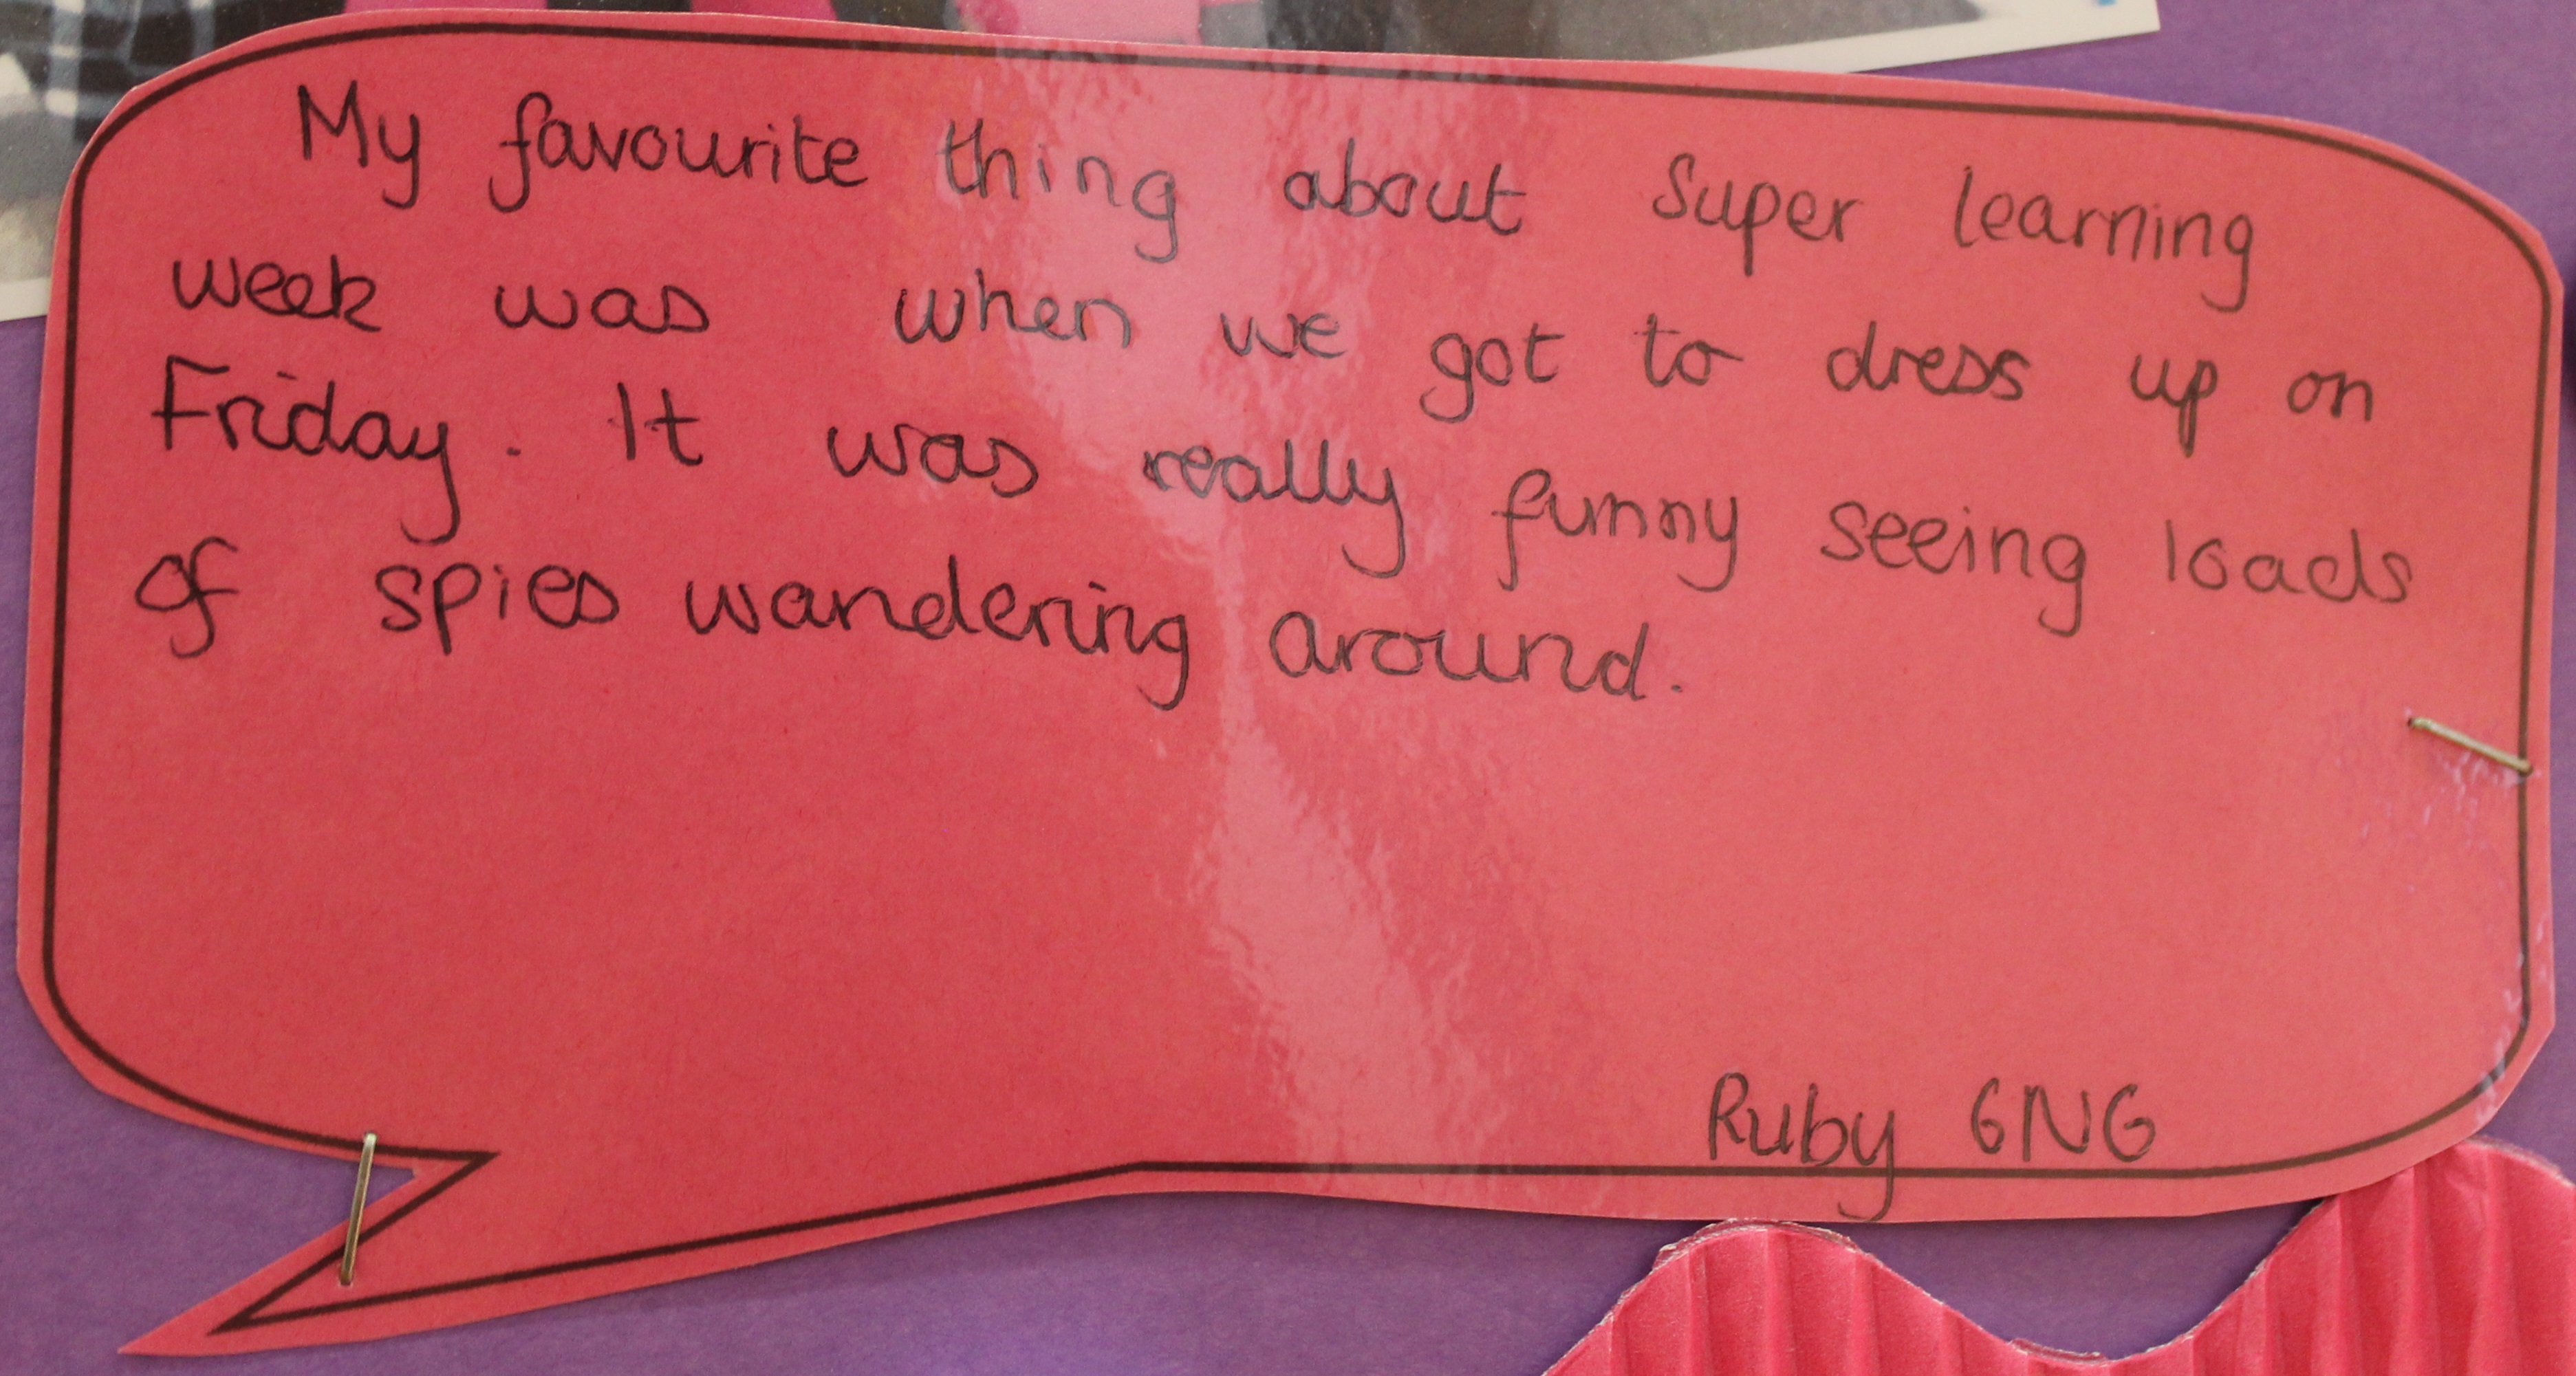 My favourite thing about Super learning
week was when we got to dress up on
Friday. It was really funny seeing loads
of spies wandering around.
Ruby 6NG